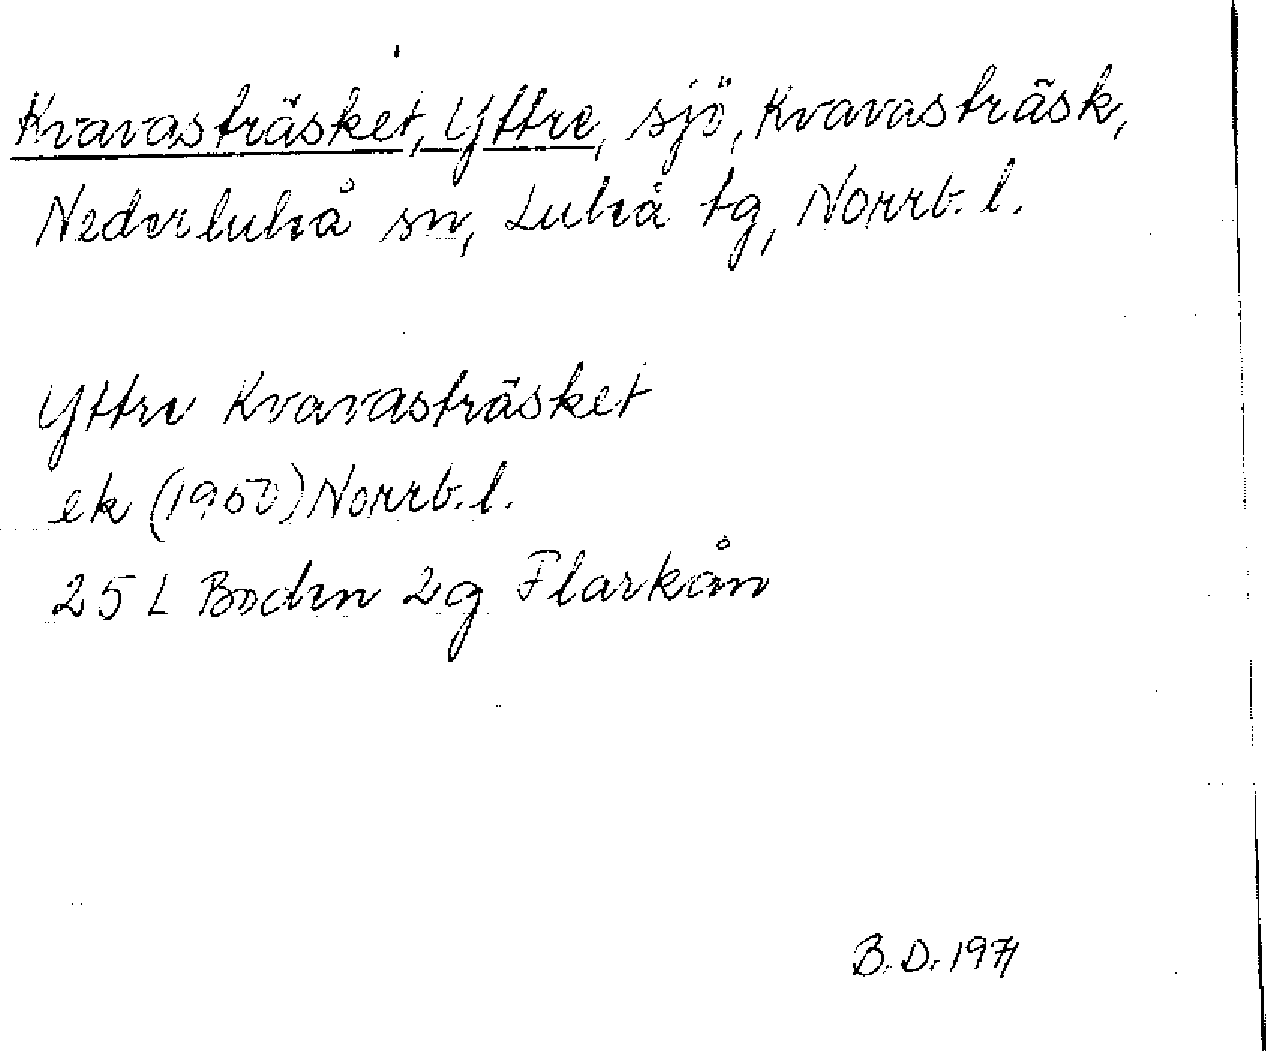 Kvavasträsket, Yttre, sjö, Kvavasträsk,
Nederluleå sn, Luleå tg, Norrb. l.
Yttre Kvavasträsket
ek (1950) Norrb. l.
25 L Boden 2g Flarkån
B. D. 1971